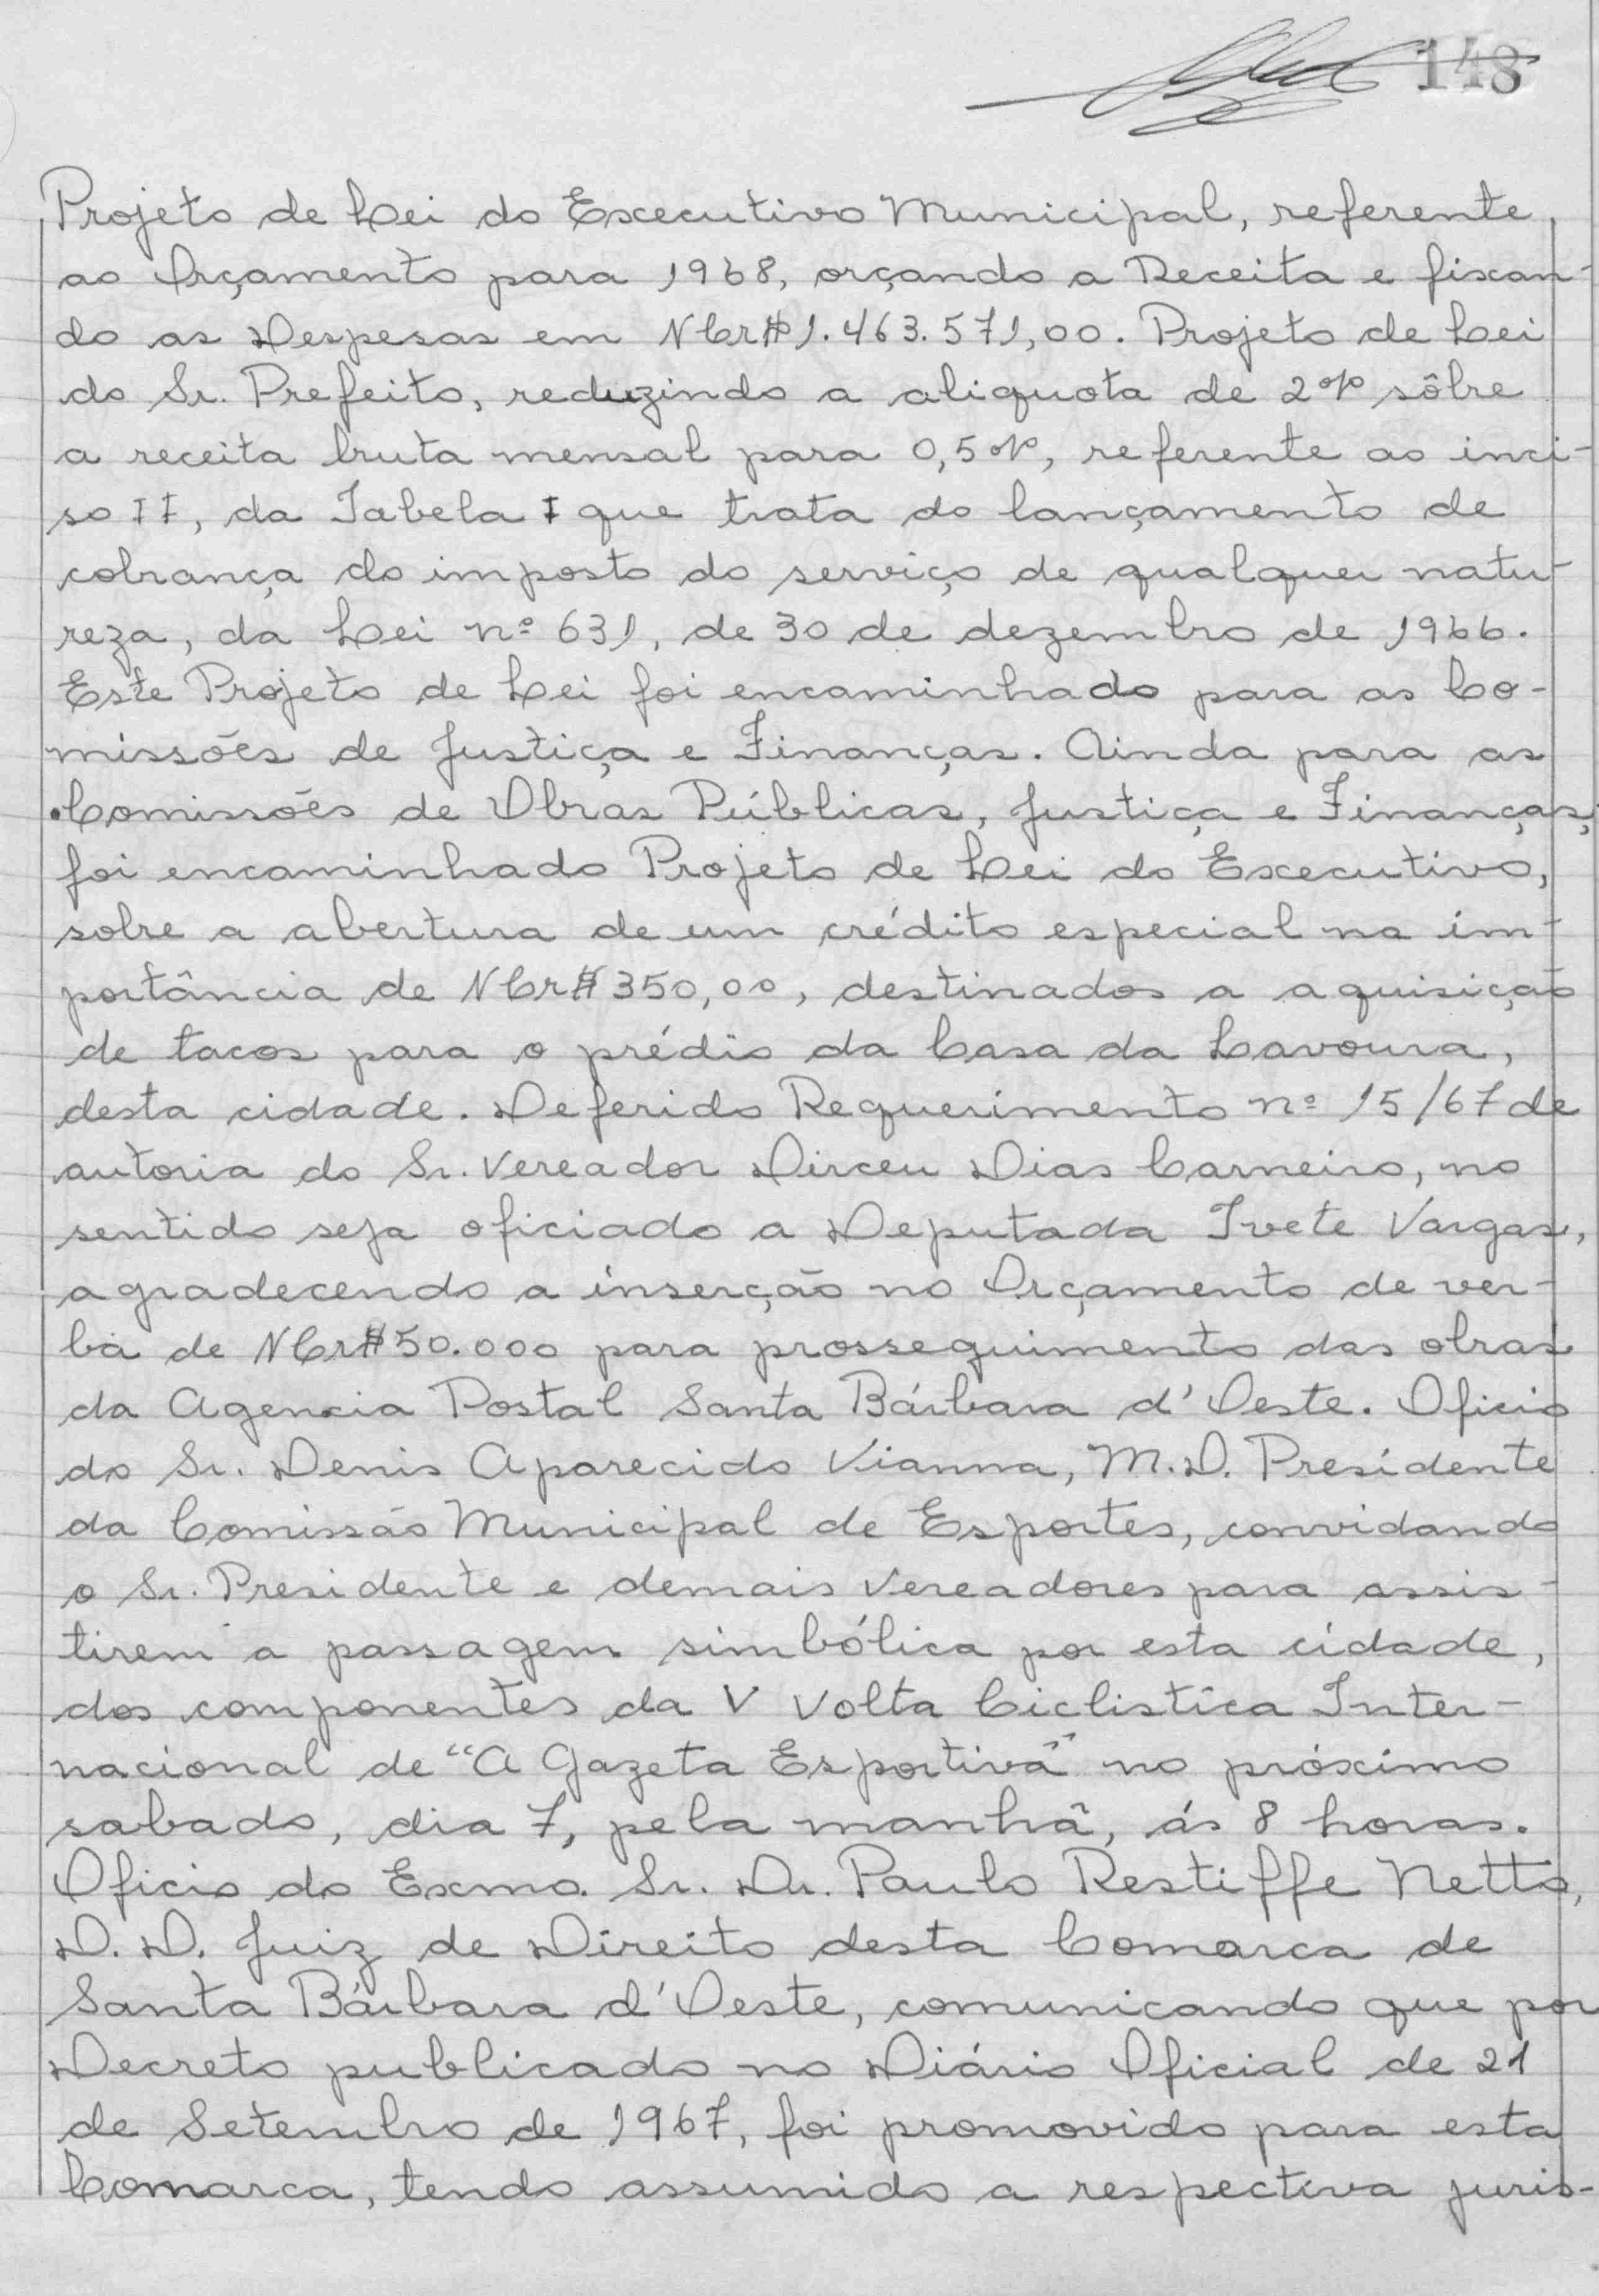 148
Projeto de Lei do Executivo Municipal, referente,
ao Orçamento para 1968, orçando a Receita e fixan-
do as Despesas em NCr$1.463.571,00. Projeto de Lei
do Sr. Prefeito, reduzindo a aliquota de 2% sôbre
a receita bruta mensal para 0,5%, referente ao inci-
so II, da Tabela I que trata do lançamento de
cobrança do imposto do serviço de qualquer natu-
reza, da Lei nº 631, de 30 de dezembro de 1966.
Este Projeto de Lei foi encaminhado para as Co-
missões de Justiça e Finanças. Ainda para as
Comissões de Obras Públicas, Justiça e Finanças,
foi encaminhado Projeto de Lei do Executivo,
sobre a abertura de um crédito especial na im-
portância de NCr$350,00, destinados a aquisição
de tacos para o prédio da Casa da Lavoura,
desta cidade. Deferido Requerimento nº 15/67 de
autoria do Sr. Vereador Dirceu Dias Carneiro, no
sentido seja oficiado a Deputada Ivete Vargas,
agradecendo a inserção no Orçamento de ver-
ba de NCr$50.000 para prosseguimento das obras
da Agencia Postal Santa Bárbara d'Oeste. Oficio
do Sr. Denis Aparecido Vianna, M.D. Presidente
da Comissão Municipal de Esportes, convidando
o Sr. Presidente e demais Vereadores para assis-
tirem a passagem simbólica por esta cidade,
dos componentes da V Volta Ciclistica Inter-
nacional de "A Gazeta Esportiva" no próximo
sabado, dia 7, pela manhã, ás 8 horas.
Oficio do Exmo. Sr. Dr. Paulo Restiffe Netto,
D. D. Juiz de Direito desta Comarca de
Santa Bárbara d'Oeste, comunicando que por
Decreto publicado no Diário Oficial de 21
de Setembro de 1967, foi promovido para esta
Comarca, tendo assumido a respectiva juris-